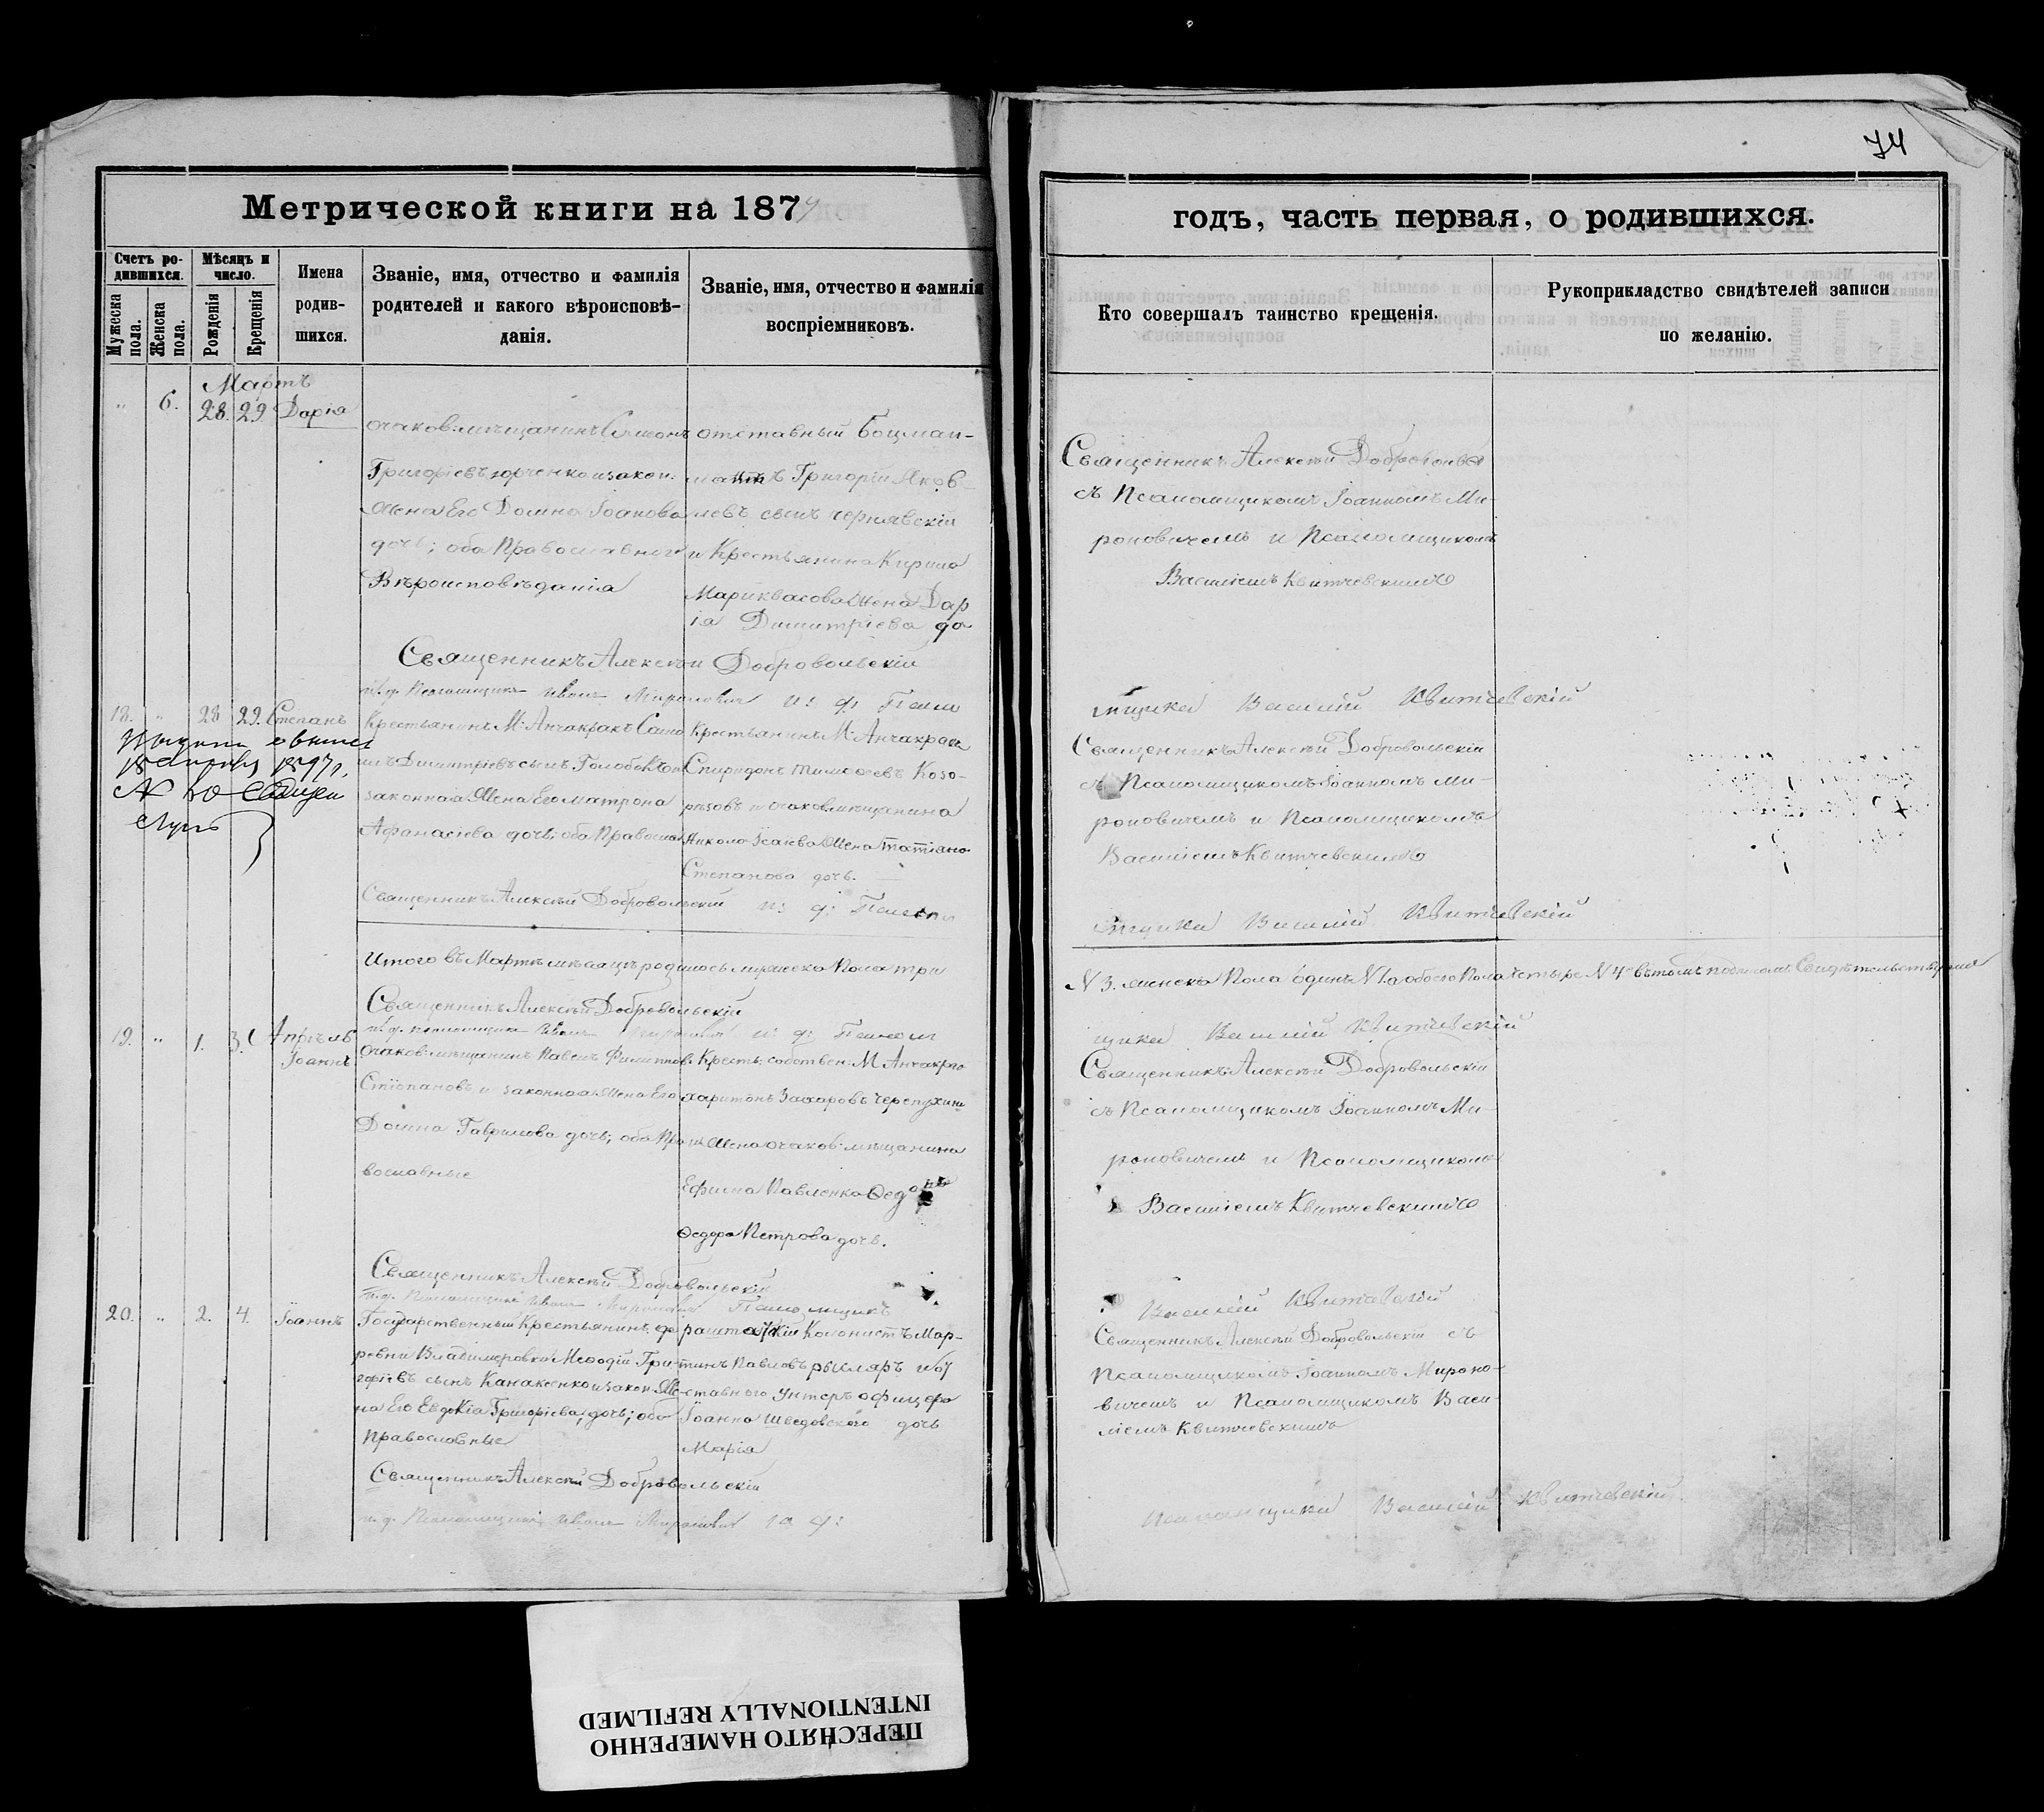 74
Метрической книги на 187
годъ, часть первая, о родившихся.
Счетъ ро-
дившихся.
Мѣсяцъ и
число.
Имена
родив-
шихся.
Званіе, имя, отчество и фамилія
родителей и какого вѣроисповѣ-
данія.
Званіе, имя, отчество и фамилія
воспріемниковъ.
Мужеска
пола.
Женска
пола.
Рожденія
Крещенія
Кто совершалъ таинство крещенія.
Рукоприкладство свидѣтелей записи
по желанію.
Мартъ
" 6. 28. 29. Дарія
Очаков: мѣщанинъ
Григоріевъ Юрченко и закон:
Жена Его Домна Іоанова
дочь; оба Православнаго
Вѣроисповѣданія
отставный Боцман-
матъ Григорій Яков-
левъ сынъ Чернявскій
и Крестьянина Кирила
Жена Дар
ія Димитріева до
Священникъ Алексѣй Добровольскій
съ Псаломщикомъ Іоанномъ Ми-
роновичемъ и Псаломщикомъ
Василіемъ Квитчевскимъ
Священникъ Алексѣй Добровольскій
и. д. Псаломщикъ Иванъ Миронович и: д: Псалом
щика Василій Квитчевскій
18. " 28 29. Степанъ
1897г.
Крестьянинъ М: Анчакракъ
Димитріевъ сынъ
законная Жена Его Матрона
Афанасіева дочь; оба Правосла
Крестьянинъ М: Анчакрака
Спиридонъ Тимофеевъ Козо-
рѣзовъ и Очаков: мѣщанина
Жена Татіана
Степанова дочь.
Священникъ Алексѣй Добровольскій
съ Псаломщикомъ Іоанномъ Ми-
роновичемъ и Псаломщикомъ
Василіемъ Квитчевскимъ
Священникъ Алексѣй Добровольскій и: д: Псалом
щика Василій Квитчевскій
Итого въ Мартѣ мѣсяцѣ родилось мужеска Пола три
N 3. женска Пола одинъ N 1. а обоего Пола четыре N 4 въ томъ подписомъ Свидѣтельствуемъ
Священникъ Алексѣй Добровольскій
и. д. Псаломщика Иванъ Миронович и: д: Псалом
щика Василій Квитчевскій
Апрѣль
19. " 1. 3. Іоаннъ
Очаков: мѣщанинъ Павелъ Филиппов:
Степановъ и законная Жена Его
Домна Гаврилова дочь; оба Пра
вославные
Кресть: собствен: М. Анчакрака
Харитонъ Захаровъ
Жена Очаков: мѣщанина
Ефима Павленка
Ѳедора Петрова дочь.
Священникъ Алексѣй Добровольскій
съ Псаломщикомъ Іоанномъ Ми-
роновичемъ и Псаломщикомъ
Василіемъ Квитчевскимъ
Священникъ Алексѣй Добровольскій
и. д. Псаломщика Иванъ Миронович Псаломщикъ
Василій Квитчевскій
20. " 2. 4. Іоаннъ
Государственный Крестьянинъ де
ревни Владимеровки Меѳодій Гри-
горіевъ сынъ Канаксенко и закон: Же-
на Его Евдокія Григоріева дочь; оба
Православные
Колонистъ Мар-
тинъ Павловъ
ставнаго Унтеръ офицера
Іоанна Шведовского дочь
Марія
Священникъ Алексѣй Добровольскій съ
Псаломщикомъ Іоанномъ Мироно-
вичемъ и Псаломщикомъ Васи-
ліемъ Квитчевскимъ
Священникъ Алексѣй Добровольскій
и. д. Псаломщика Иванъ Миронович
Псаломщика Василій Квитчевскій
ПЕРЕСНЯТО НАМЕРЕННО
INTENTIONALLY REFILMED